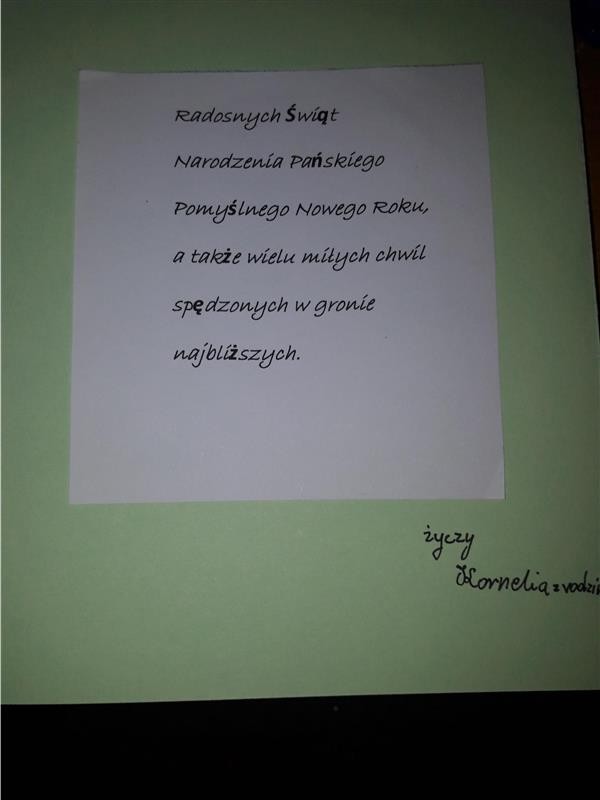 Radosnych Świąt
Narodzenia Pańskiego
Pomyślnego Nowego Roku,
a także wielu miłych chwil
spędzonych w gronie
najbliższych.
życzy
Kornelia z